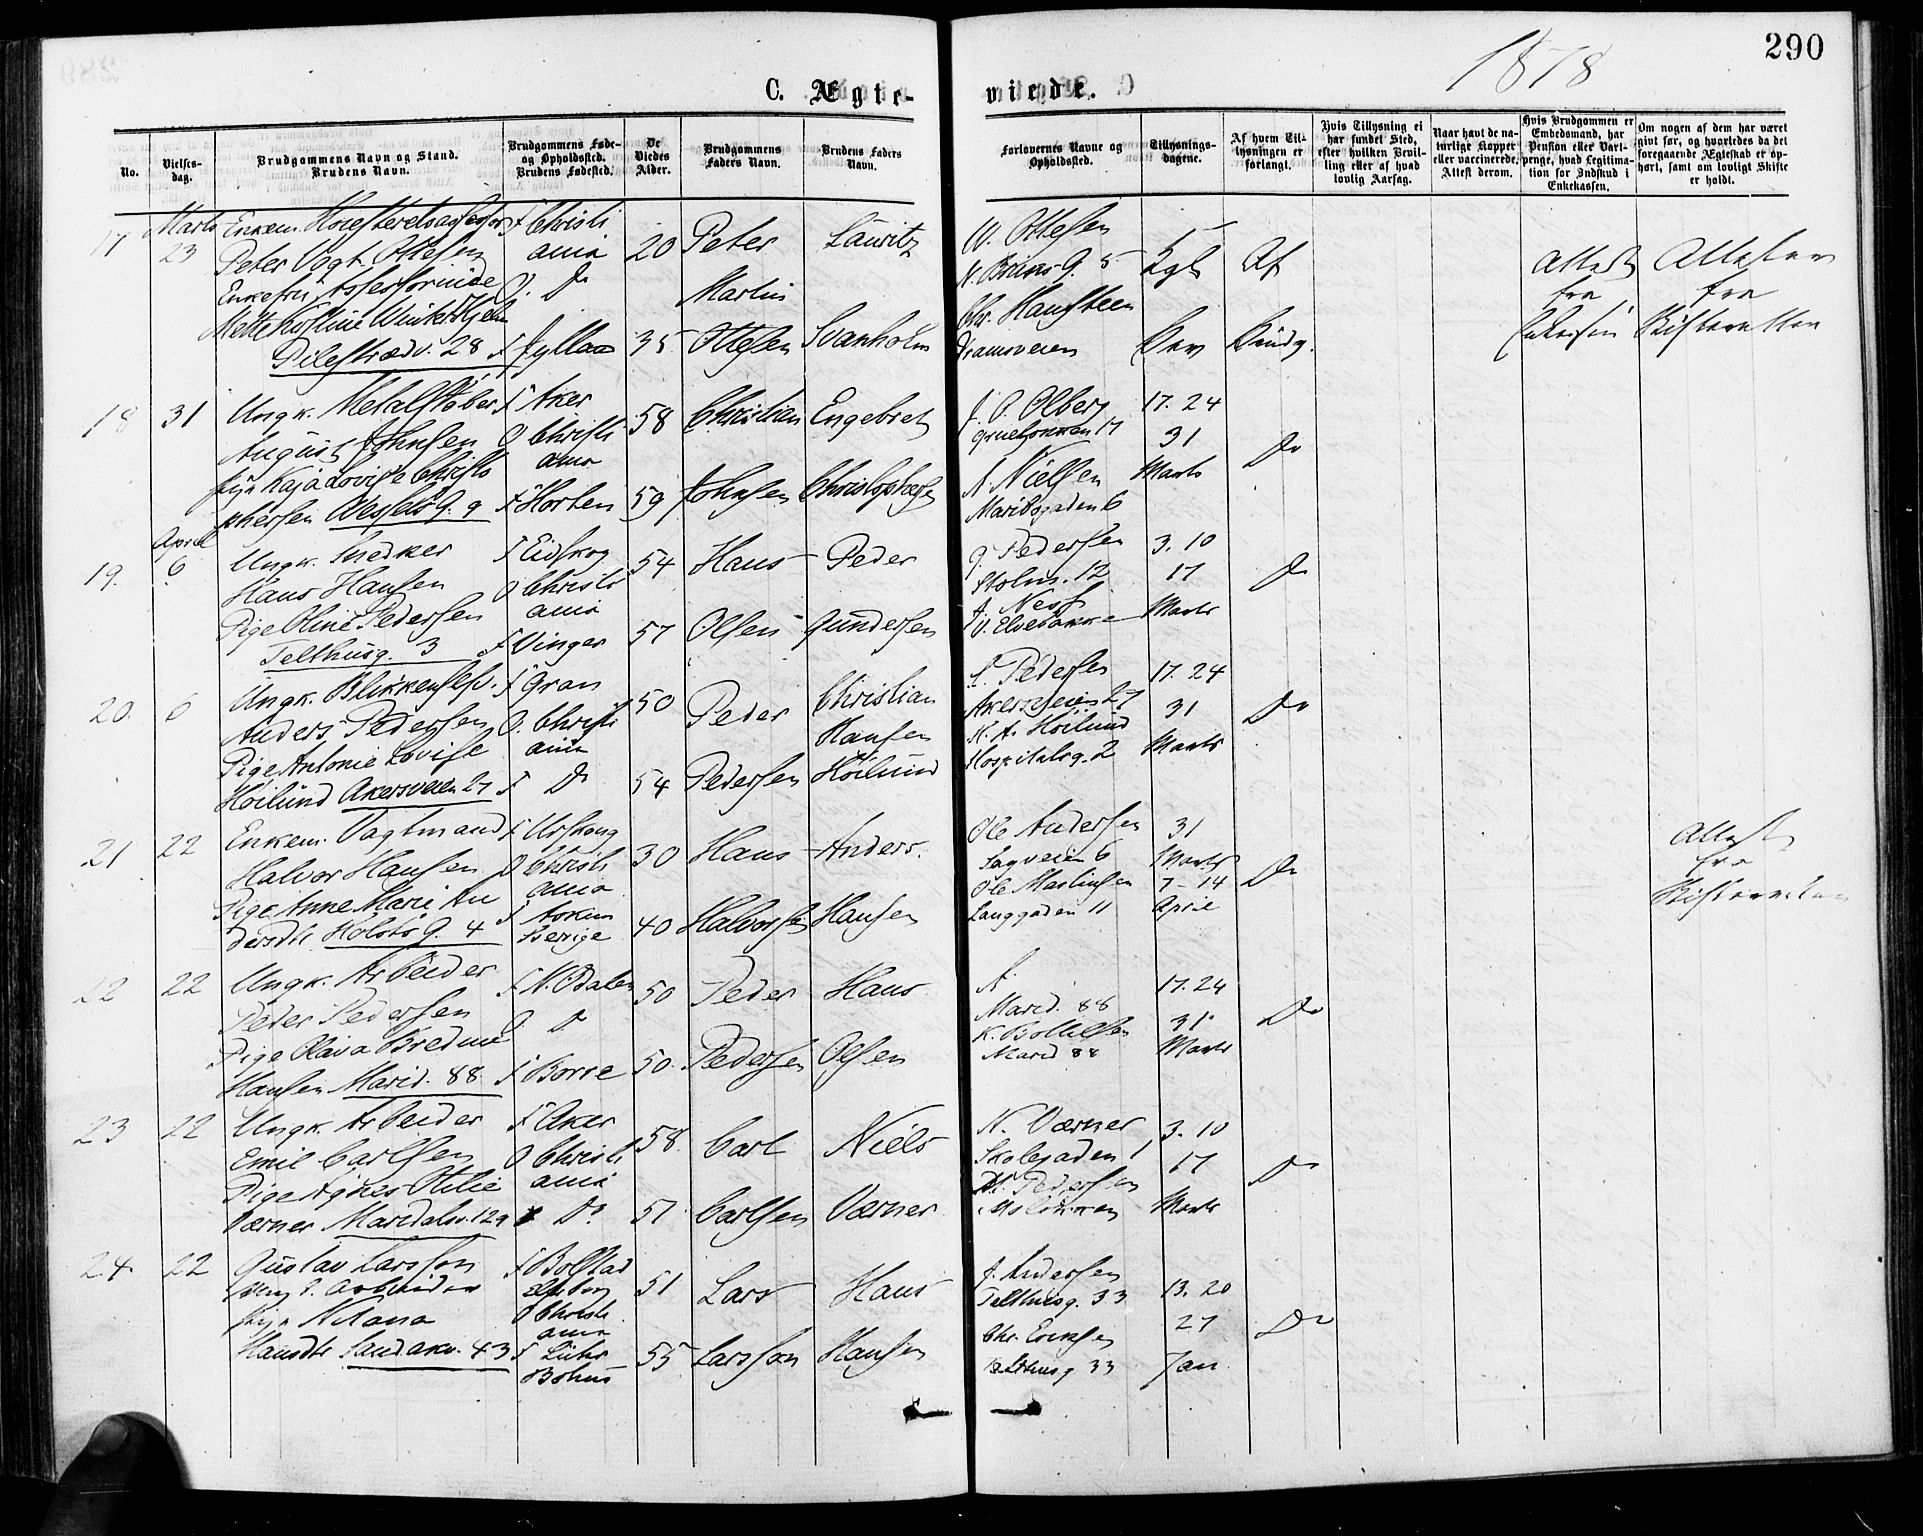 290
1878
C. Ægte-
viede.
No.
Vielses-
dag.
Brudgommens Navn og Stand.
Brudens Navn.
Brudgommens Føde-
og Opholdssted.
Brudens Fødested.
De
Viedes
Alder.
Brudgommens
Faders Navn.
Brudens Faders
Navn.
Forlovernes Navne og
Opholdssted.
Tillysnings-
dagene.
Af hvem Til-
lysningen er
forlangt.
Hvis Tillysning ei
har fundet Sted,
efter hvilken Bevil-
ling eller af hvad
lovlig Aarsag.
Naar havt de na-
turlige Kopper
eller vaccinerede,
Attest derom.
Hvis Brudgommen er
Embedsmand, har
Pension eller Vart-
penge, hvad Legitima-
tion for Indskud i
Enkekassen.
Om nogen af dem har været
givt før, og hvorledes da det
foregaaende Ægteskab er op-
hørt, samt om lovligt Skifte
er holdt.
17
Marts
23
Enkem. Høiesteretsassessor
Peter Vogt Ottesen
Enkefru Assessorinde
Mette Winter Hjelm
Pilestrædv. 28
F Christi
ania
O. Do
F Jylland
20
35
Peter
Martin
Ottesen
Lauritz
Svanholm
W. Ottesen
N. Bruns G. 5
Chr. Hansteen
Dramsveien
Kgl
Bev
Af
Brudg.
Attest
fra
Attester
fra
Skifteretten
18
31
Ungk. Metalstøber
August Johnsen
Pige Kaja Lovise Christo
phersen Wessels G. 9
F Aker
O Christi
ania
F Horten
58
59
Christian
Johnsen
Engebret
Christophersen
J. O. Olberg
Grueløkken 17
A. Nielsen
Maribogaden 6
17. 24
31
Marts
Do
19.
April
6
Ungk. Snedker
Hans Hansen
Pige Oline Pedersen
Telthusg. 3
F Eidskog
O Christi
ania
F Vinger
54
57
Hans
Olsen
Peder
Gundersen
Pedersen
Holms. 12
A. Ness
V. Elvebakke
3. 10
17
Marts
Do
20.
6
Ungk. Blikkensl.
Anders Pedersen
Pige Antonie Lovise
Høilund Akersveien 27
F Gran
O. Christi
ania
F Do
50
54
Peder
Pedersen
Christian
Hansen
Høilund
L. Pedersen
Akersveien 27
H. A. Høilund
Hospitalsg. 2
17. 24
31
Marts
Do
21
22
Enkem. Vagtmand
Halvor Hansen
Pige Anne Marie An
dersdt. Holsts G. 4
F Urskoug
O Christi
ania
F
Sverige
30
40
Hans
Halvorsen
Anders.
Hansen
Ole Andersen
Sagveien 6
Ole Martinsen
Langgaden 11
31
Marts
7 - 14
April
Do
Attest
fra
Skifteretten
22
22
Ungk. Arbeider
Peder Pedersen
Pige Olava Bredine
Hansen Marid. 88
F N. Odalen
O Do
F Borre
50
50.
Peder
Pedersen
Hans
Olsen
A.
Marid. 88
K. Bottelsen
Marid 88
17. 24
31
Marts
Do
23
22
Ungk. Arbeider
Emil Carlsen
Pige Agnes Otilie
Værner Maridalsv. 129
F Aker
O Christi
ania
F Do
58
57
Carl
Carlsen
Niels
Værner
N. Værner
Skolegaden 1
M. Pedersen
Møløkken
3. 10
17
Marts
Do
24.
22
Gustav Larsson
Ung. Arbeider
Pige N Nana
Hansdt. Sandakv. 43
F Bolstad
Elfsborg
O Christi
ania
F
Bohus
51
55
Lars
Larsson
Hans
Hansen
J. Andersen
Telthusg. 33
Chr. Eriksen
Telthusg 33
13. 20
27
Jan
Do